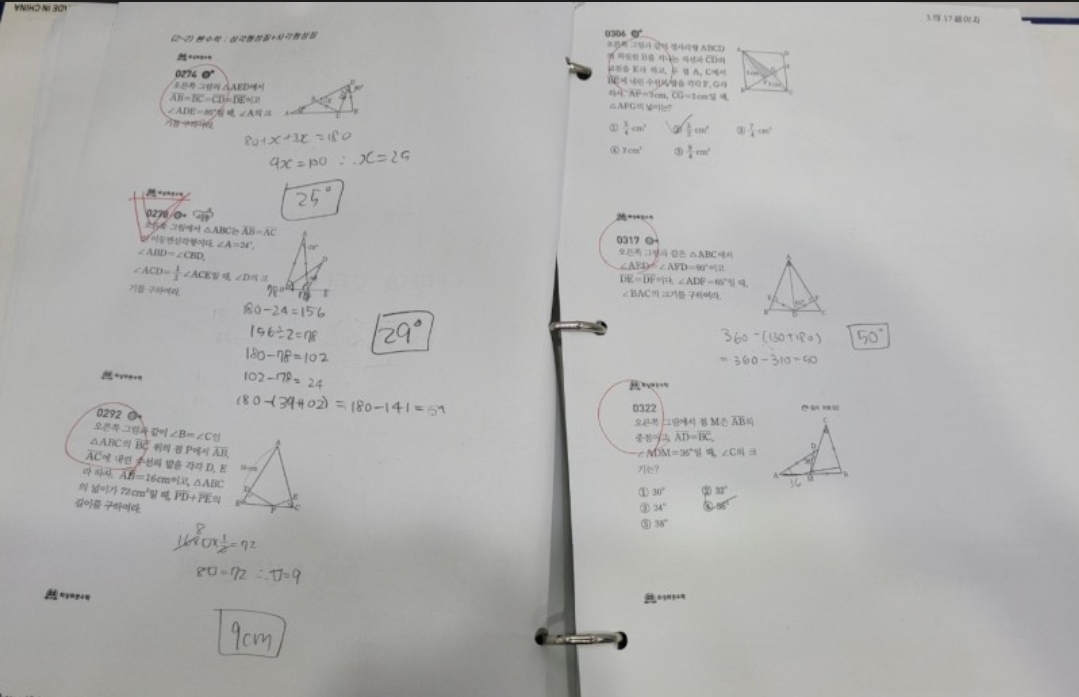 ADE IN CHINA
(2-2) 쎈수학 : 삼각형성질+사각형성질
0274
오른쪽 그림의 △AED에서
AB=BC=CD=DE이고
∠ADE=80°일 때, ∠A의 크
기를 구하여라.
80+x+3x=180
∴ x=25
25°
0278
오른쪽 그림에서 △ABC는 AB=AC
인 이등변삼각형이다. ∠A=24°,
∠ABD=∠CBD,
∠ACD=∠ACE일 때, ∠D의 크
기를 구하여라.
180-24=156
156÷2=78
180-78=102
102-78=24
=180-141=
29°
0292
오른쪽 그림과 같이 ∠B=∠C인
△ABC의 BC 위의 점 P에서 AB,
AC에 내린 수선의 발을 각각 D, E
라 하자. AB=16cm이고, △ABC
의 넓이가 72cm²일 때, PD+PE의
길이를 구하여라.
=72
=72 ∴ =9
9cm
3의
0306
오른쪽 그림과 같이 정사각형 ABCD
의 꼭짓점 B를 지나는 직선과 CD의
교점을 E라 하고, 두 점 A, C에서
BE에 내린 수선의 발을 각각 F, G라
하자. AF=3cm, CG=2cm일 때,
△AFG의 넓이는?
① 3/4 cm² ② 3/2 cm² ③ 7/4 cm²
④ 2cm² ⑤ 9/4 cm²
0317
오른쪽 그림과 같은 △ABC에서
∠AED=∠AFD=90°이고
DE=DF이다. ∠ADF=65°일 때,
∠BAC의 크기를 구하여라.
360-(130+180)
=360-310=50
50°
0322
오른쪽 그림에서 점 M은 AB의
중점이고, AD=BC,
∠ADM=36°일 때, ∠C의 크
기는?
36
① 30° ② 32°
③ 34° ④ 36°
⑤ 38°